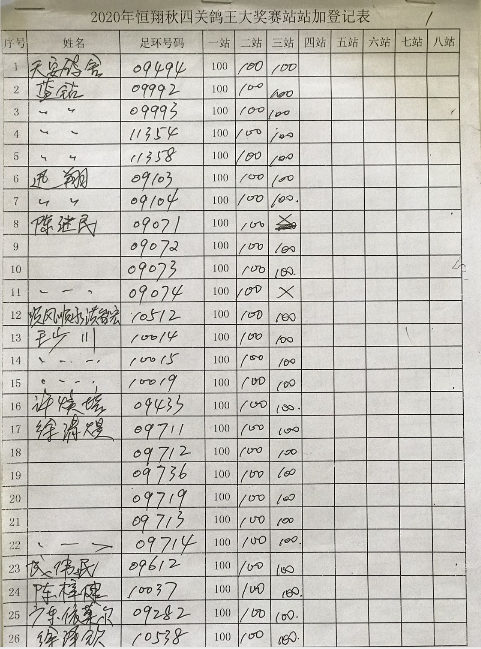 2020年恒翔秋四关鸽王大奖赛站站加登记表 1
序号 姓名 足环号码 一站 二站 三站 四站 五站 六站 七站 八站
1 天安鸽舍 09494 100 100 100
2 蓝钻 09992 100 100 100
3 〃 〃 09993 100 100 100
4 〃 〃 11354 100 100 100
5 〃 〃 11358 100 100 100
6 迅翔 09103 100 100 100
7 〃 〃 09104 100 100 100.
8 陈进民 09071 100 100 ×
9 09072 100 100 100
10 09073 100 100 100.
11 〃 — 〃 09074 100 100 ×
12 10512 100 100 100
13 王少川 10014 100 100 100
14 〃 — 〃 10015 100 100 100
15 〃 — 〃 10019 100 100 100
16 许焕 09433 100 100 100.
17 徐 09711 100 100 100
18 09712 100 100 100
19 09736 100 100 100
20 09719 100 100 100
21 09713 100 100 100
22 09714 100 100 100.
23 伟民 09612 100 100 100
24 陈梓健 10037 100 100 100.
25 广东 09282 100 100 100.
26 徐 10538 100 100 100.